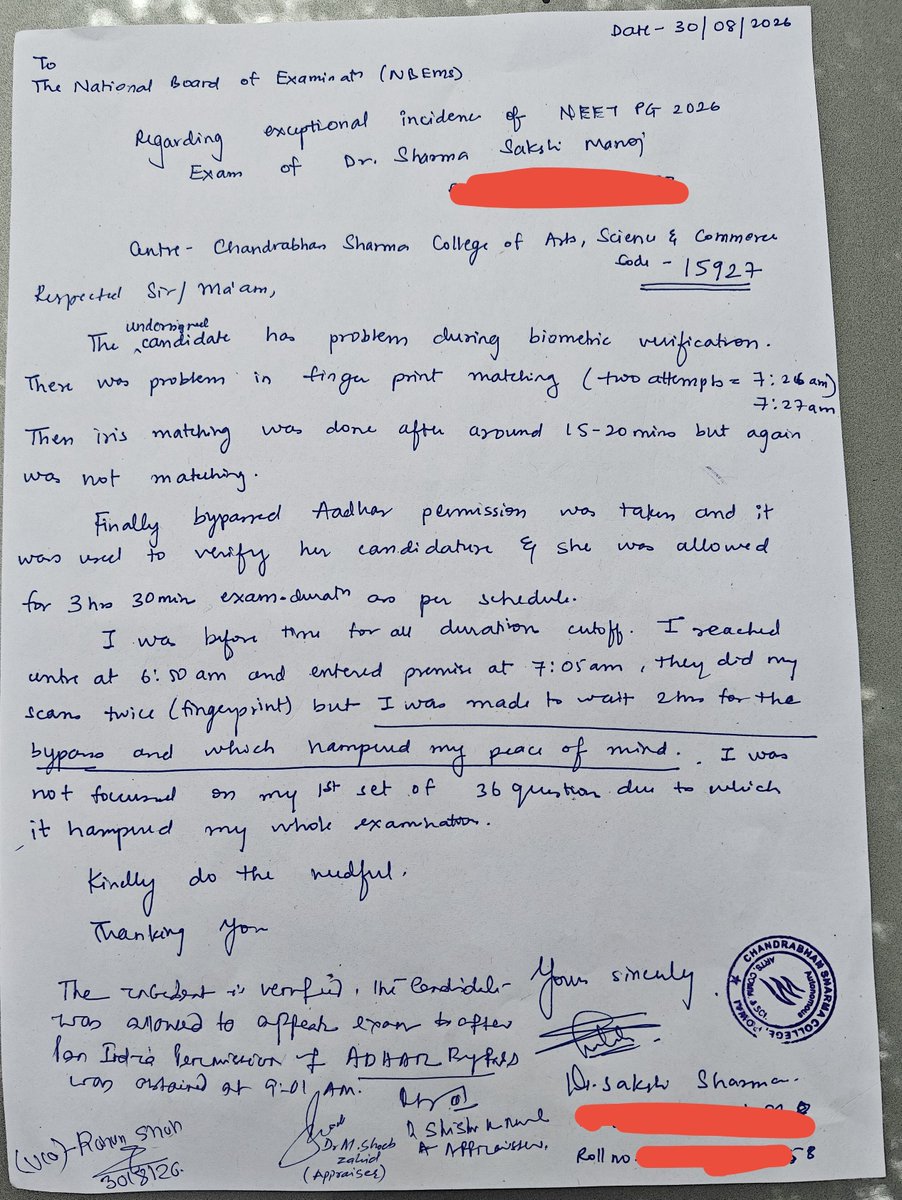 Date - 30/08/2026
To
The National Board of Examinatn (NBEMS)
Regarding exceptional incidence of NEET PG 2026
Exam of Dr. Sharma Sakshi Manoj
Centre - Chandrabhan Sharma College of Arts, Science & Commerce
Code - 15927
Respected Sir/ Ma'am,
The undersigned candidate has problem during biometric verification.
There was problem in finger print matching (two attempts = 7:26 am)
7:27am
Then iris matching was done after around 15-20 mins but again
was not matching.
Finally bypassed Aadhar permission was taken and it
was used to verify her candidature & she was allowed
for 3 hrs 30 min exam duratn as per schedule.
I was before time for all duration cutoff. I reached
centre at 6:50 am and entered premise at 7:05 am, they did my
scans twice (fingerprint) but I was made to wait 2 hrs for the
bypass and which hampered my peace of mind. I was
not focused on my 1st set of 36 question due to which
it hampered my whole examination.
Kindly do the needful.
Thanking You
Your sincerely
The incedent is verified, the Candidate
was allowed to appear exam after
Pan India Permission of ADHAR Bypass
was obtained at 9:01 AM.
CHANDRABHAN SHARMA COLLEGE, POWAI
ARTS, COMM & SCI.
Autonomous
Dr. Sakshi Sharma.
Roll no. 58
Dr M. Shoeb
Zahid
(Appraiser)
Appraiser
30/8/26.